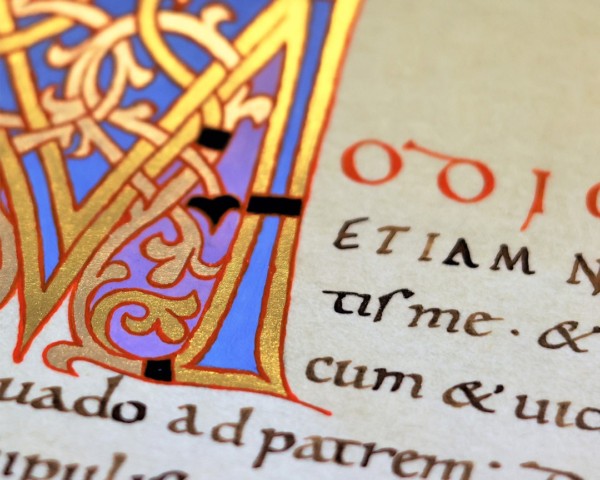 ODI
ETIAM N
tiſ me · &
cum & uic
uado ad patrem ·